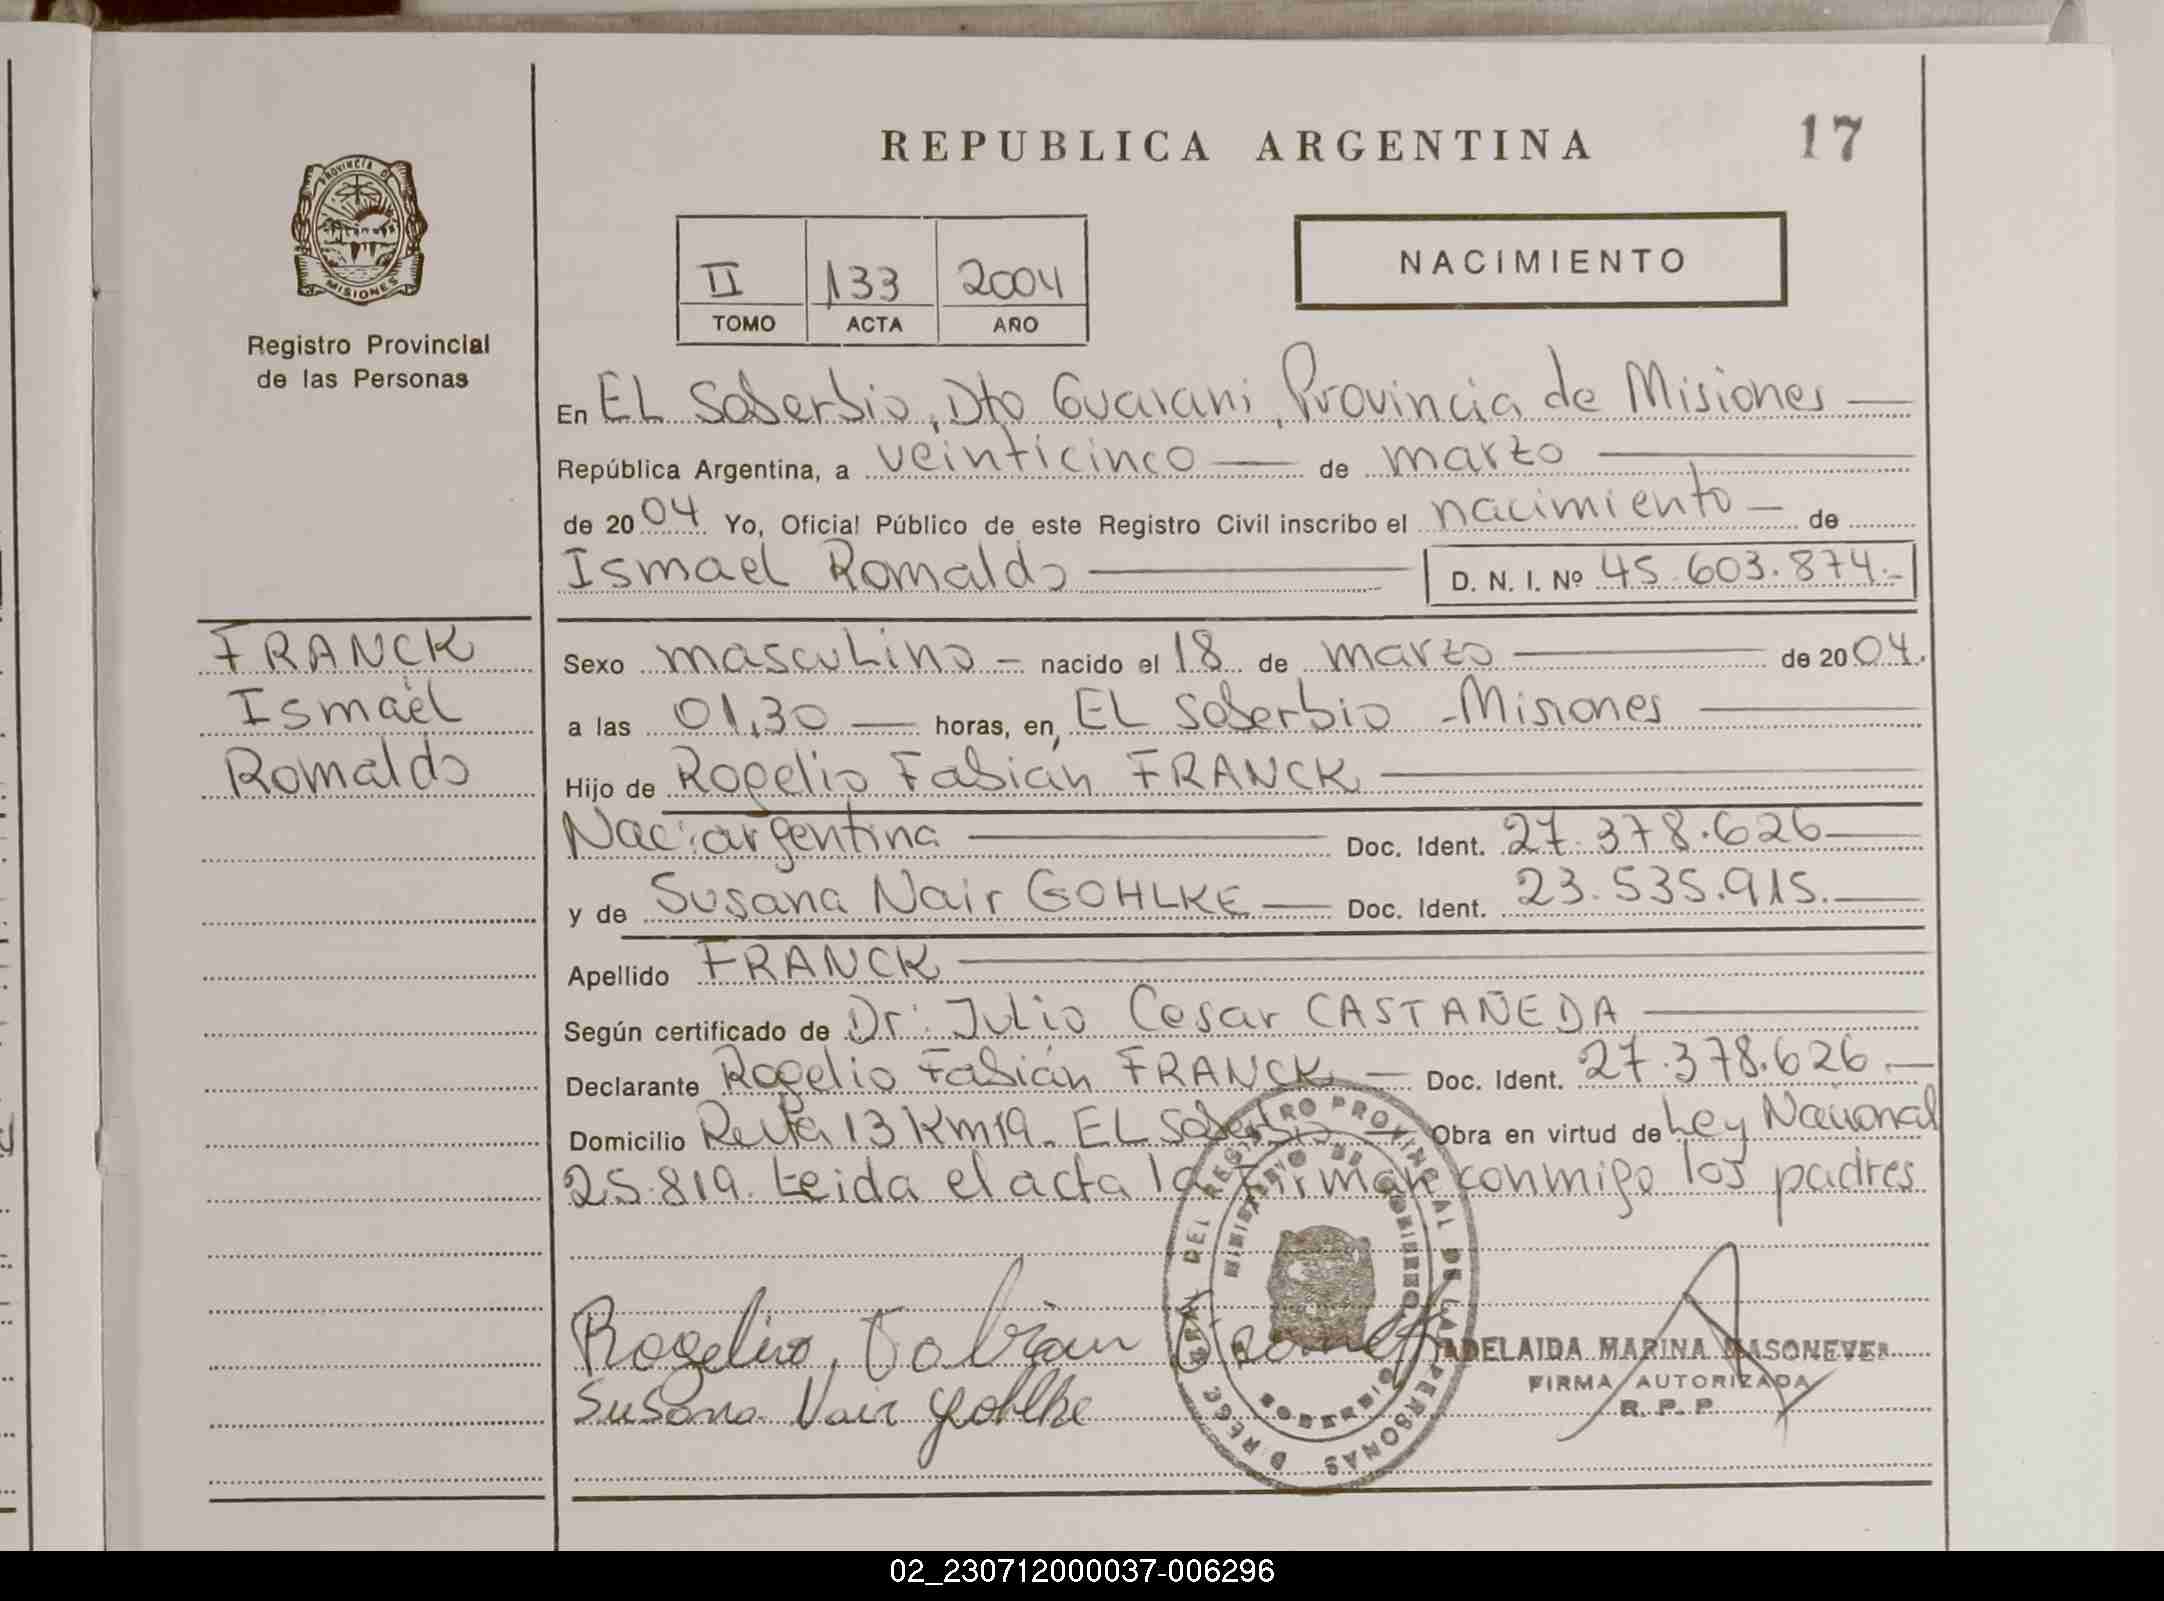 REPUBLICA ARGENTINA
17
PROVINCIA DE
MISIONES
Registro Provincial
de las Personas
II 133 2004
TOMO ACTA AÑO
NACIMIENTO
En EL Soberbio, Dto Guarani, Provincia de Misiones
República Argentina, a veinticinco de marzo
de 2004 Yo, Oficial Público de este Registro Civil inscribo el nacimiento de
Ismael Romaldo D. N. I. Nº 45.603.874.-
FRANCK
Ismael
Romaldo
Sexo masculino - nacido el 18 de marzo de 2004.
a las 01,30 horas, en, EL Soberbio - Misiones
Hijo de Rogelio Fabián FRANCK
Nac: argentina Doc. Ident. 27.378.626
y de Susana Nair GOHLKE Doc. Ident. 23.535.915.
Apellido FRANCK
Según certificado de Dr: Julio Cesar CASTAÑEDA
Declarante Rogelio Fabián FRANCK Doc. Ident. 27.378.626
Domicilio Ruta 13 Km 19. EL Soberbio Obra en virtud de Ley Nacional
25.819. Leida el acta la firman conmigo los padres
Rogelio Fabian Franck
Susana Nair Gohlke
ADELAIDA MARINA
FIRMA AUTORIZADA
R. P. P.
DEL REGISTRO PROVINCIAL DE LAS PERSONAS
MINISTERIO DE GOBIERNO
02_230712000037-006296